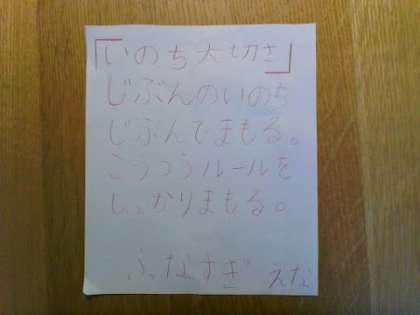 「いのち大切さ」
じぶんのいのち
じぶんでまもる。
こうつうルールを
しっかりまもる。
ふなすぎ えな